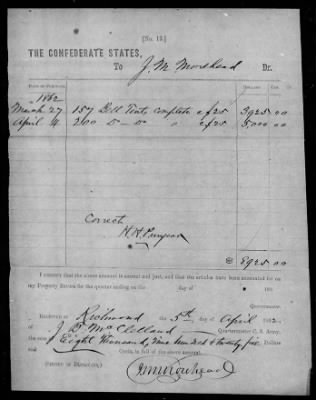 [No. 12.]
THE CONFEDERATE STATES,
To J. M. Morehead Dr.
DATE OF PURCHASE. DOLLARS. CTS.
1862
March 27 157 Bell Tents complete @ $25 3925 00
April 4 200 D- - D- " @ $25 5,000 00
Correct
$ 8925 00
I certify that the above account is correct and just, and that the articles have been accounted for on
my Property Return for the quarter ending on the day of 186
Quartermaster.
RECEIVED at Richmond the 5th of April 1862, of
J. B. McClelland Quartermaster C. S. Army,
the sum of Eight thousand, nine hundred & twenty five Dollars
Cents, in full of the above account.
(SIGNED IN DUPLICATE.)
J M Morehead